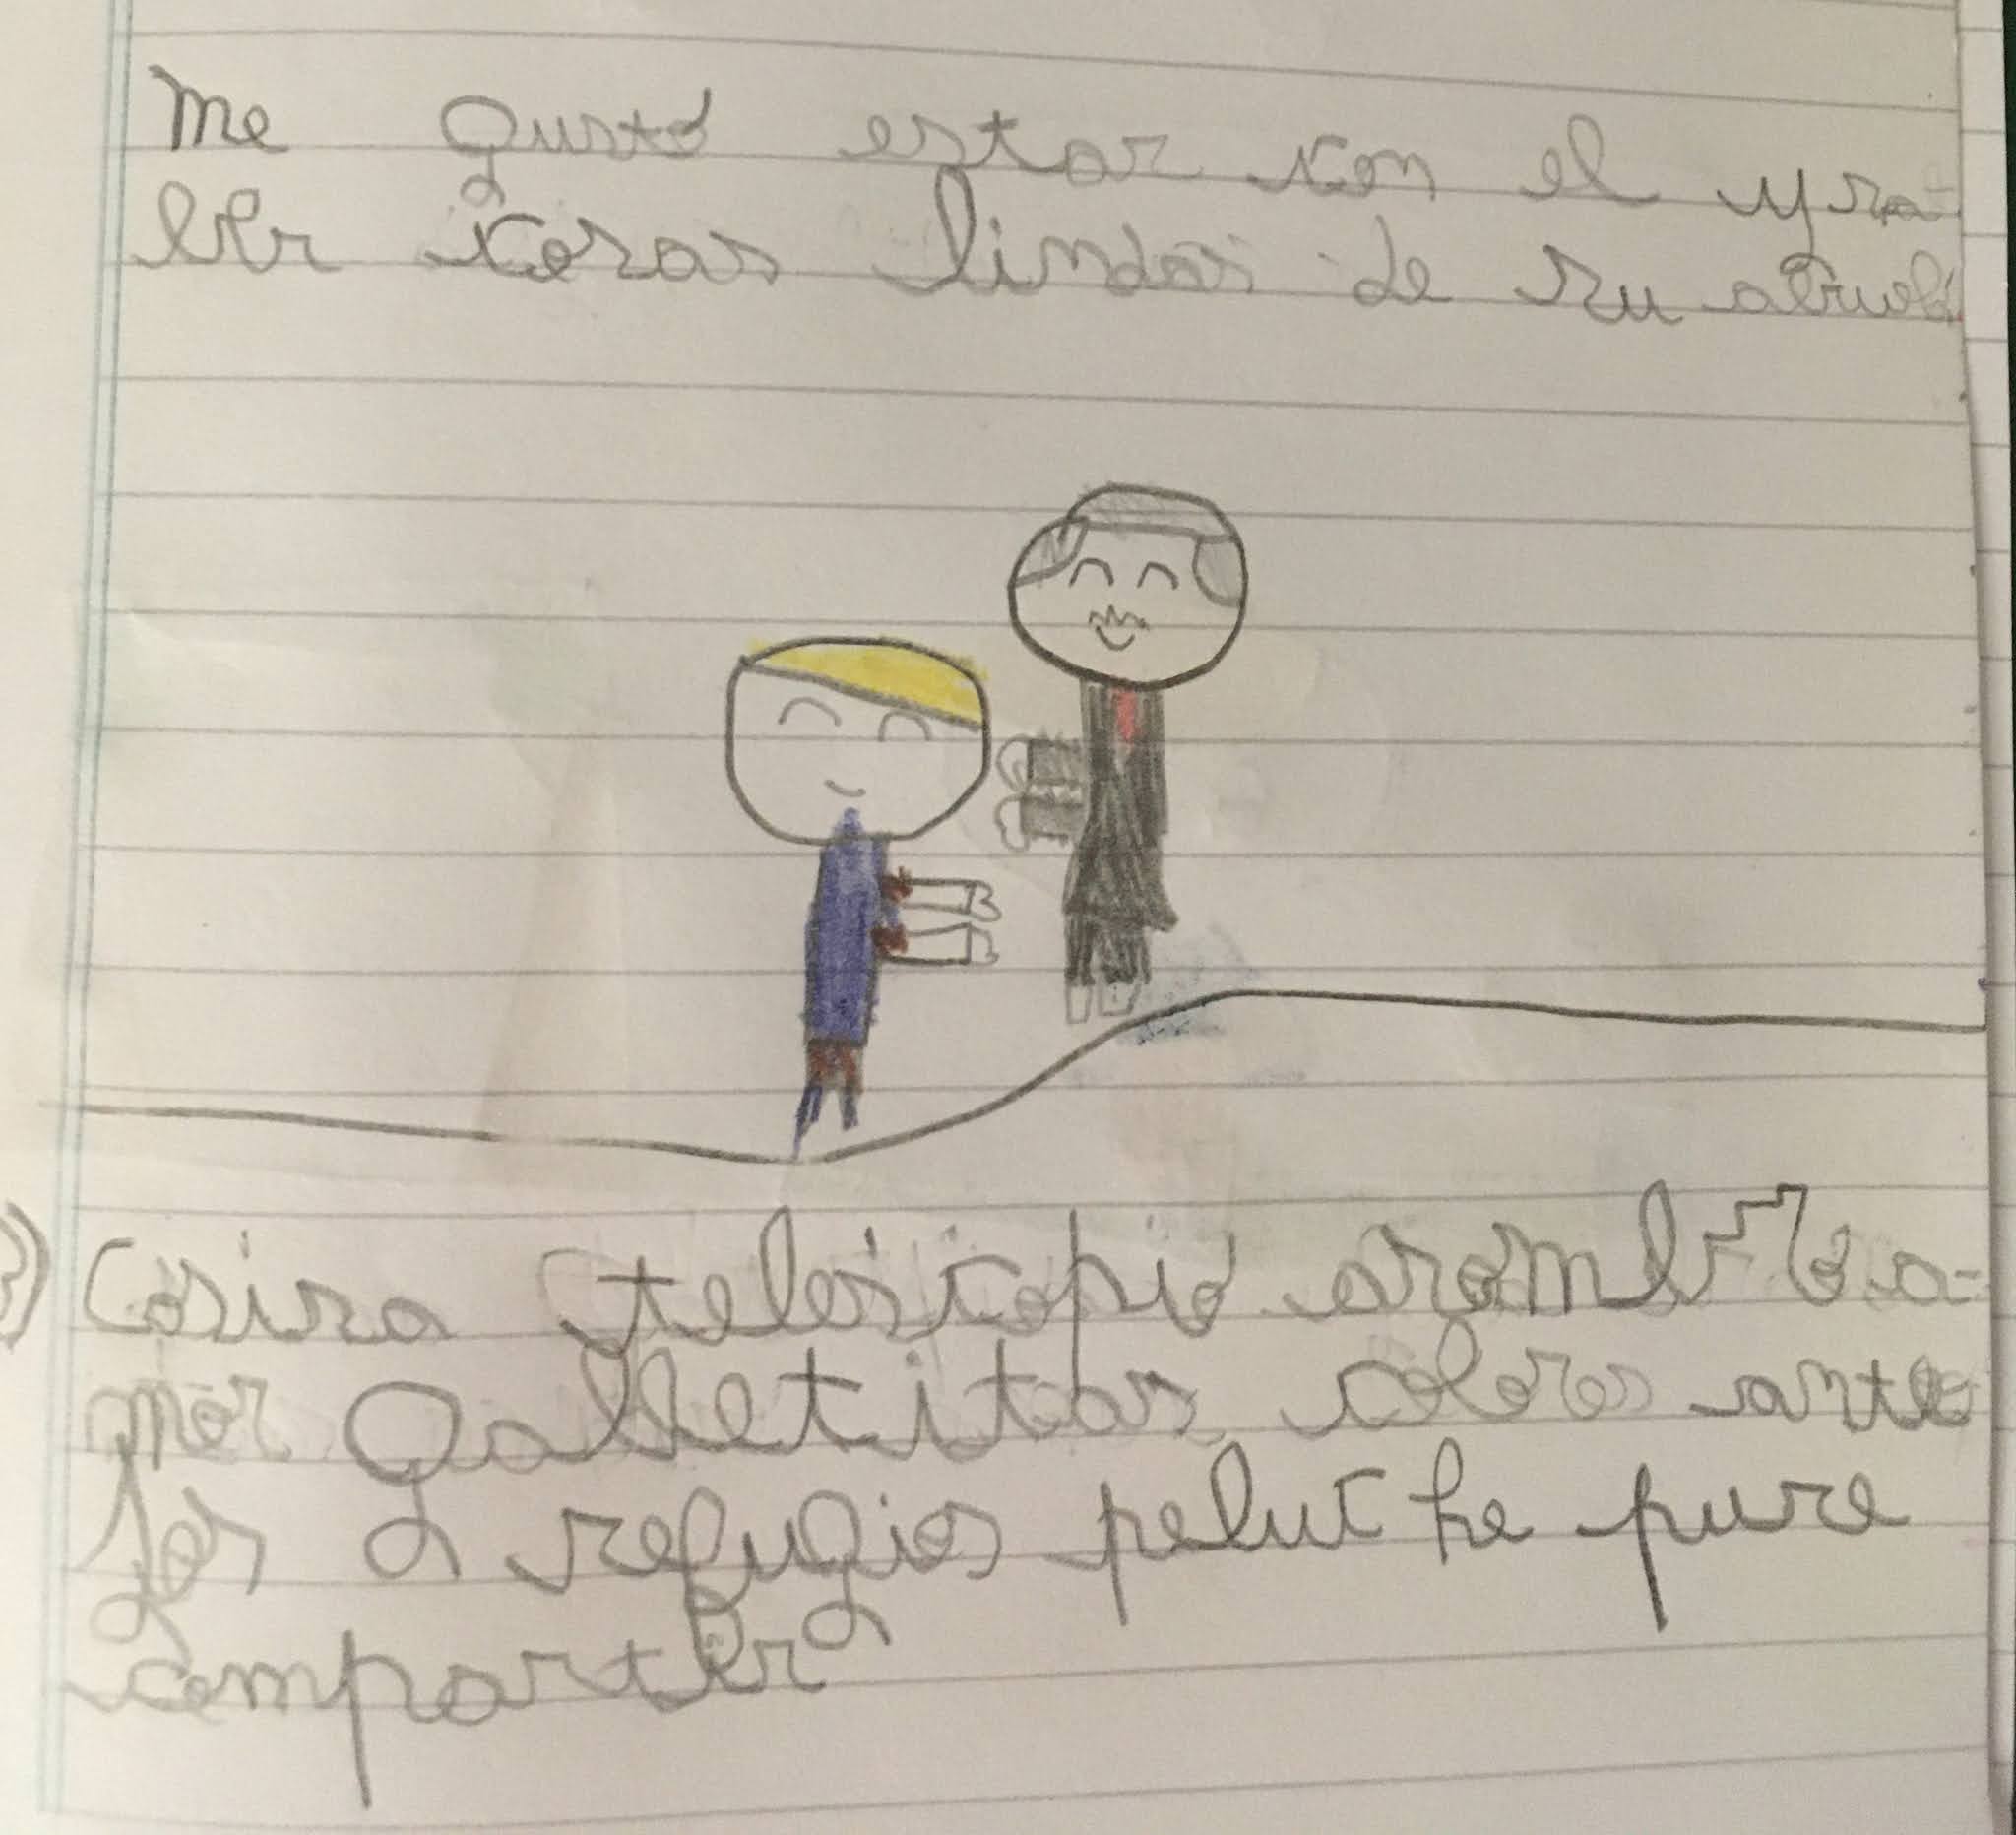 Me gustó estar con el y sa-
ber cosas lindas de su abuelo
Cosina telescopio asombro a-
mor galletitas colores anteo
jos refugios peluche pure
compartir